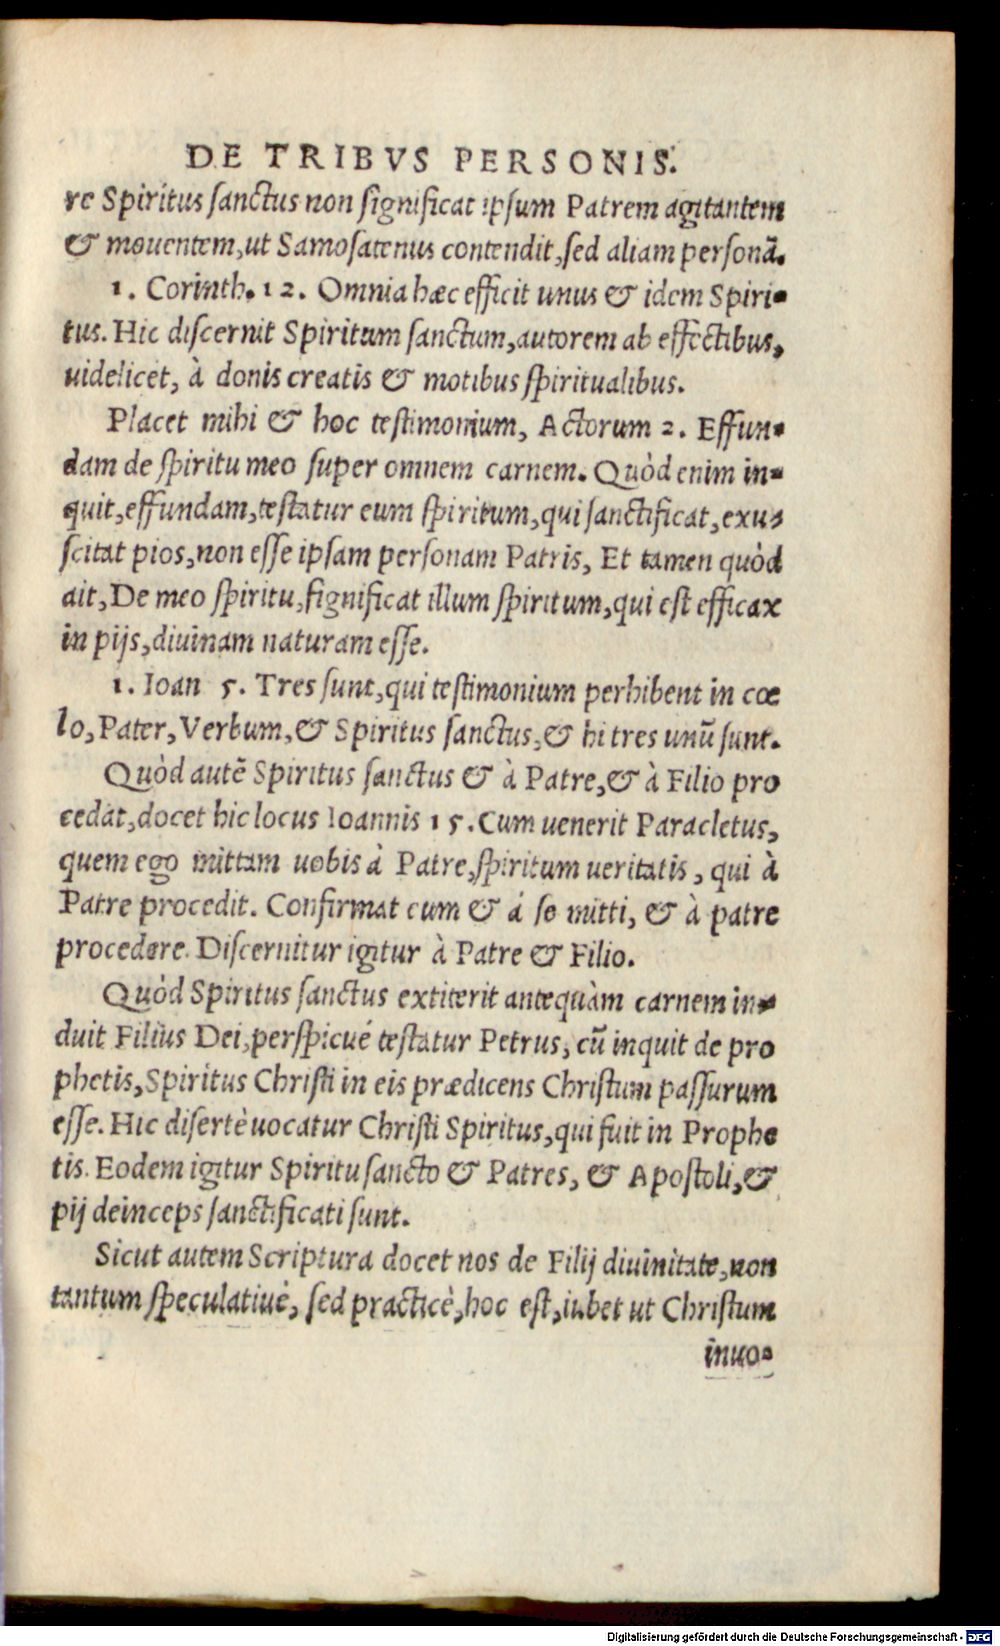 DE TRIBVS PERSONIS.
re Spiritus sanctus non significat ipsum Patrem agitantem
& mouentem, ut Samosatenus contendit, sed aliam personã.
1. Corinth. 12. Omnia hæc efficit unus & idem Spiri-
tus. Hic discernit Spiritum sanctum, autorem ab effectibus,
uidelicet, à donis creatis & motibus spiritualibus.
Placet mihi & hoc testimonium, Actorum 2. Effun-
dam de spiritu meo super omnem carnem. Quòd enim in-
quit, effundam, testatur eum spiritum, qui sanctificat, exu-
scitat pios, non esse ipsam personam Patris, Et tamen quòd
ait, De meo spiritu, significat illum spiritum, qui est efficax
in pijs, diuinam naturam esse.
1. Ioan 5. Tres sunt, qui testimonium perhibent in cœ
lo, Pater, Verbum, & Spiritus sanctus, & hi tres unũ sunt.
Quòd autẽ Spiritus sanctus & à Patre, & à Filio pro
cedat, docet hic locus Ioannis 15. Cum uenerit Paracletus,
quem ego mittam uobis à Patre, spiritum ueritatis, qui à
Patre procedit. Confirmat eum & á se mitti, & à patre
procedere. Discernitur igitur à Patre & Filio.
Quòd Spiritus sanctus extiterit antequàm carnem in-
duit Filius Dei, perspicué testatur Petrus, cũ inquit de pro
phetis, Spiritus Christi in eis prædicens Christum passurum
esse. Hic disertè uocatur Christi Spiritus, qui fuit in Prophe
tis. Eodem igitur Spiritu sancto & Patres, & Apostoli, &
pij deinceps sanctificati sunt.
Sicut autem Scriptura docet nos de Filij diuinitate, non
tantum speculatiuè, sed practicè, hoc est, iubet ut Christum
inuo-
Digitalisierung gefördert durch die Deutsche Forschungsgemeinschaft - DFG